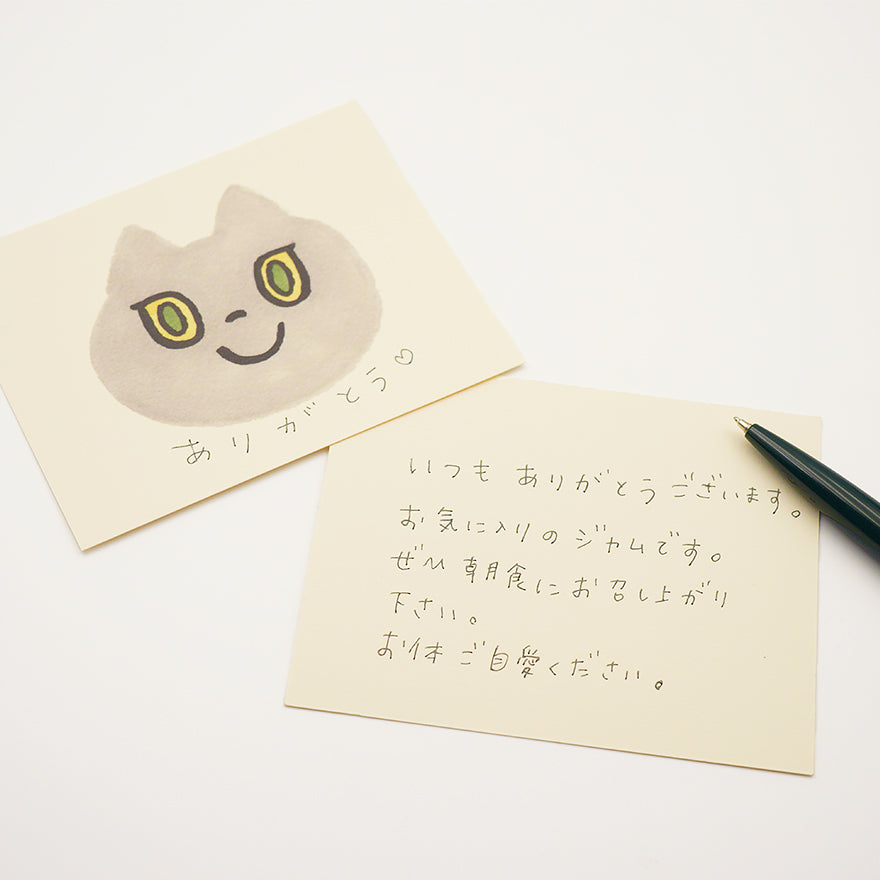 ありがとう♡
いつも ありがとうございます。
お気に入りの ジャムです。
ぜひ 朝食に お召し上がり
下さい。
お体 ご自愛ください。